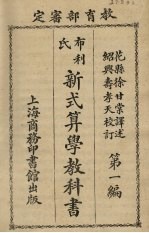 教育部審定
花縣徐甘棠譯述
紹興壽孝天校訂
布利氏
新式算學教科書
第一編
上海商務印書館出版